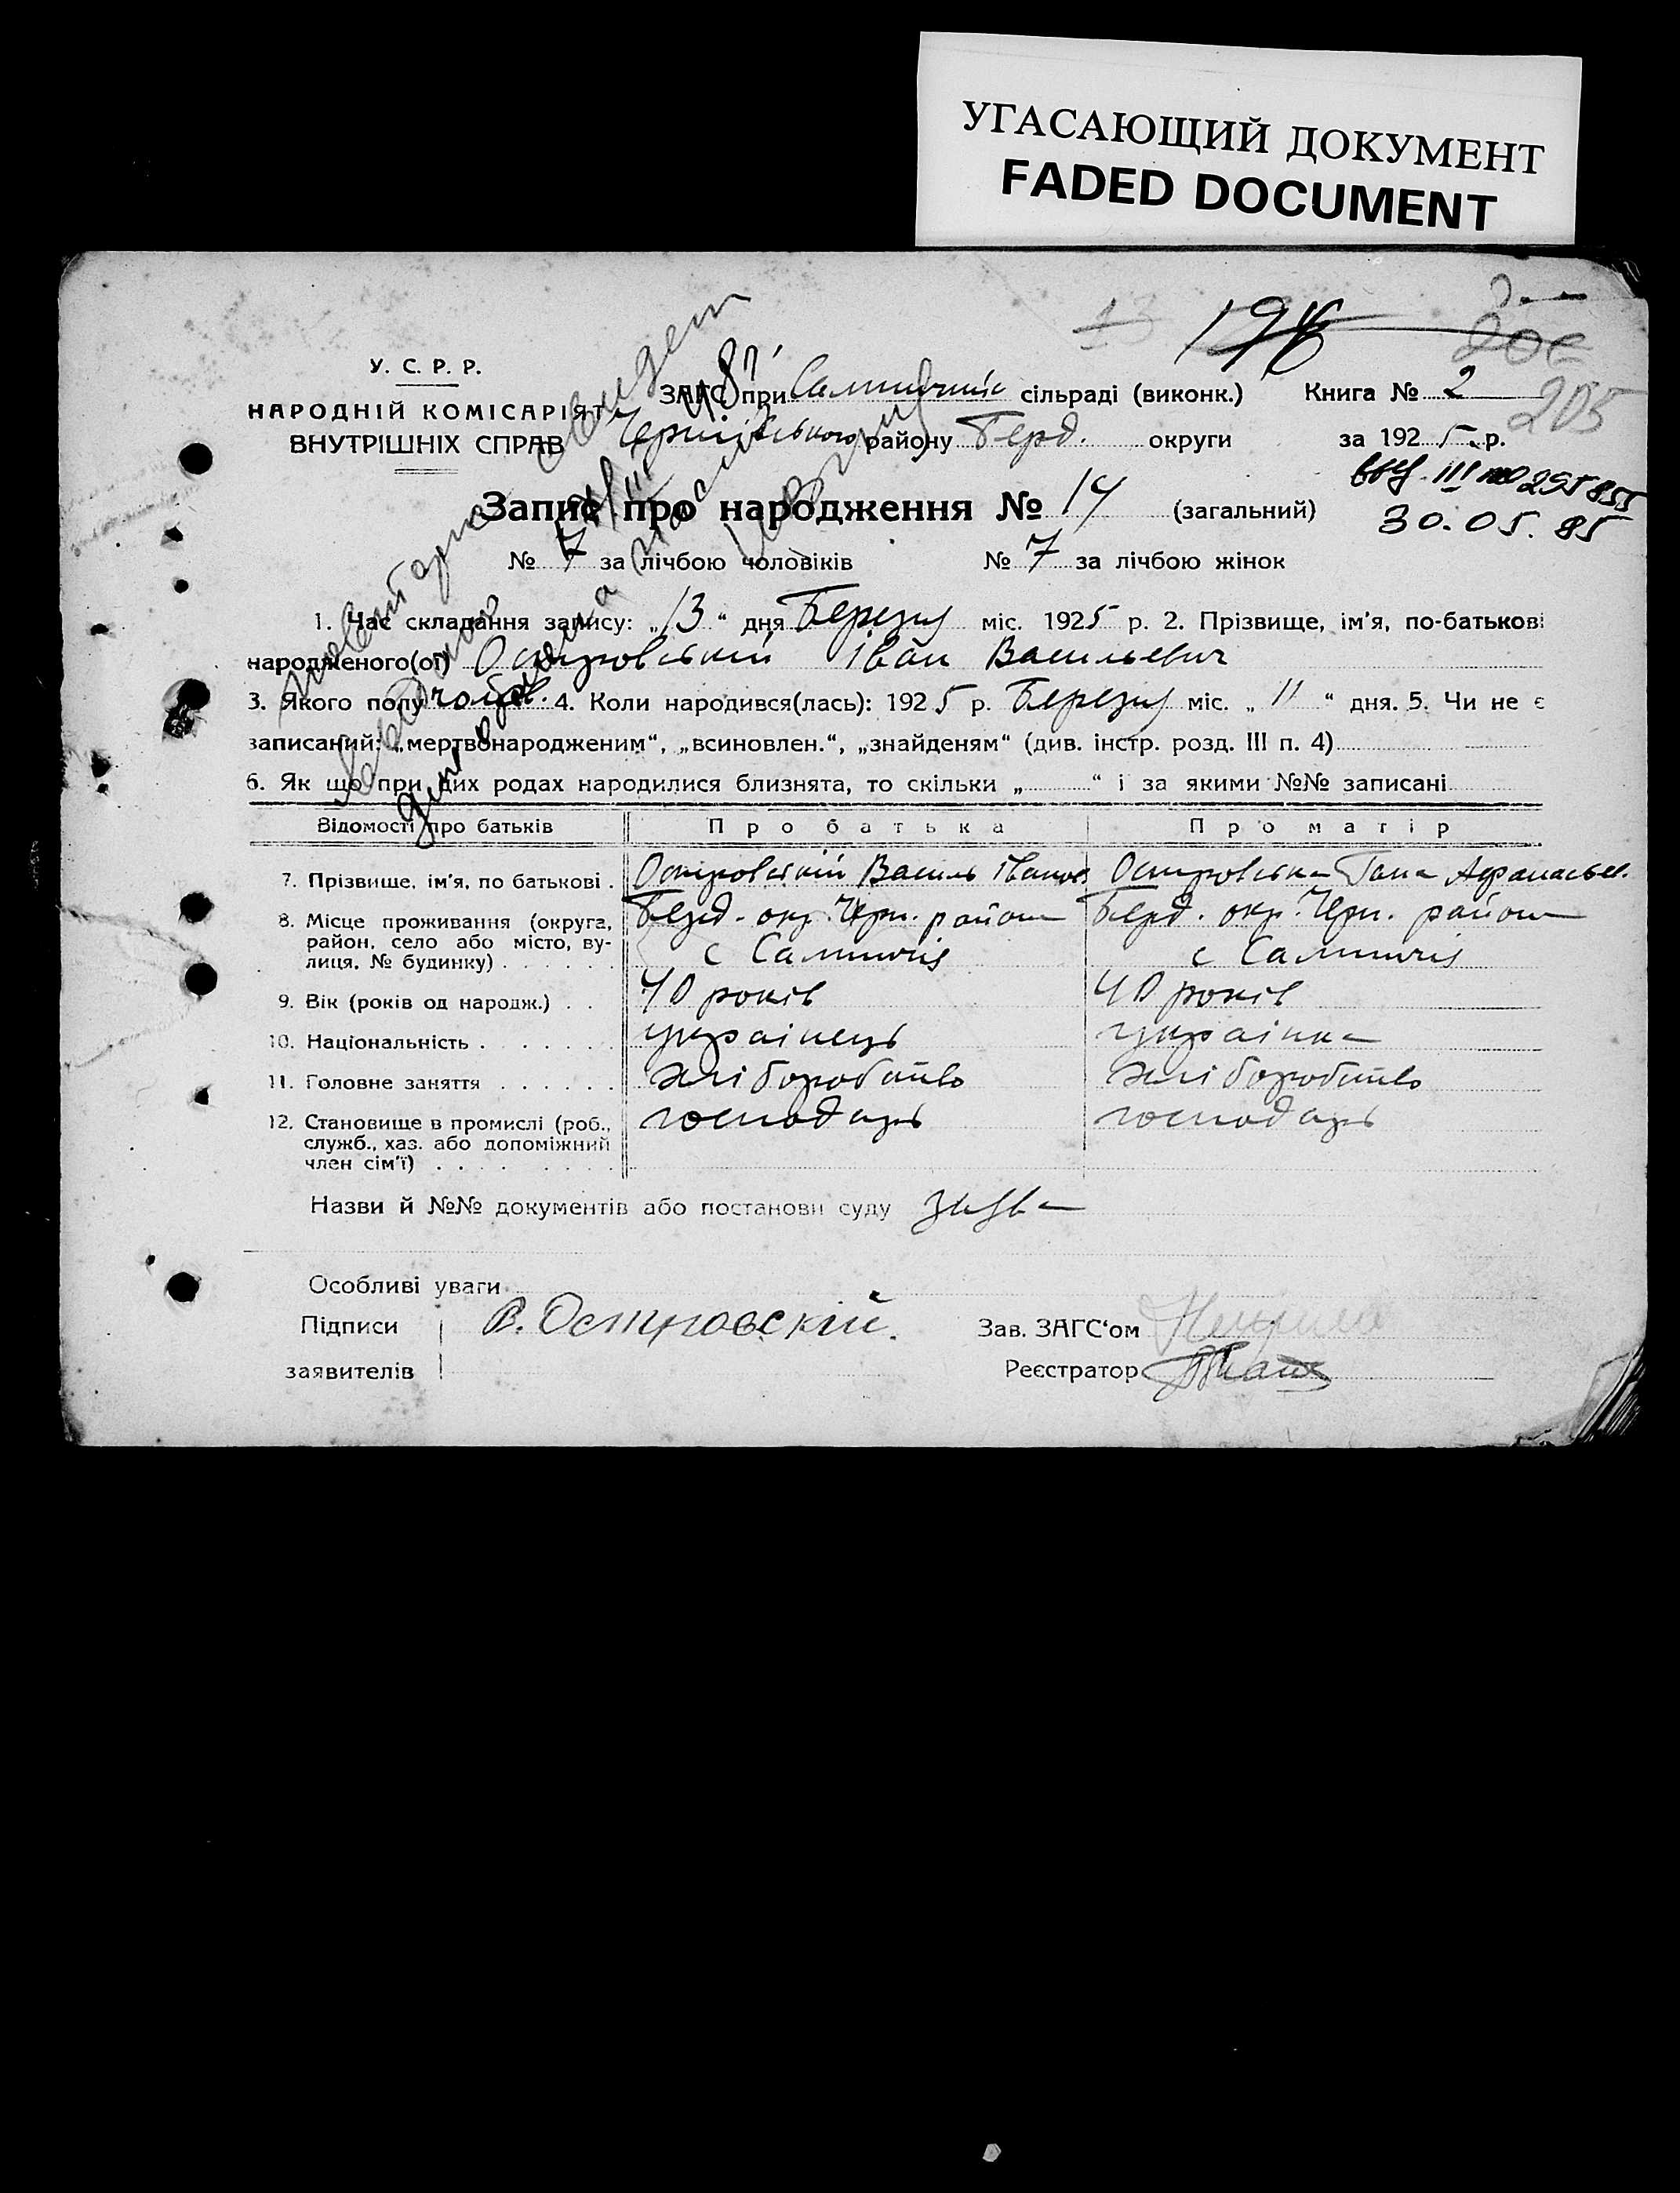 УГАСАЮЩИЙ ДОКУМЕНТ
FADED DOCUMENT
У. С. Р. Р.
НАРОДНІЙ КОМІСАРІЯТ
ВНУТРІШНІХ СПРАВ
ЗАГС при сільраді (виконк.) Книга № 2
205
району Берд. округи за 1925 р.
295855
30.05.85
Запис про народження № 14 (загальний)
№ 7 за лічбою чоловіків № 7 за лічбою жінок
1. Час складання запису: „13“ дня Березня міс. 1925 р. 2. Прізвище, ім'я, по-батькові
народженого(ої) Островський Іван Васильевич
3. Якого полу чолов. 4. Коли народився(лась): 1925 р. Березня міс. „11“ дня. 5. Чи не є
записаний: „мертвонародженим“, „всиновлен.“, „знайденям“ (див. інстр. розд. III п. 4)
6. Як що при цих родах народилися близнята, то скільки „ “ і за якими №№ записані
Відомості про батьків Про батька Про матір
7. Прізвище, ім'я, по батькові . Островський Василь Іванов. Островська Гана Афанасьев.
8. Місце проживання (округа, район, село або місто, вулиця, № будинку) . . . . . . Берд. окр. Черн. район с Берд. окр. Черн. район с
9. Вік (років од народж.) . . 40 років 40 років
10. Національність . . . . . . . українець українка
11. Головне заняття . . . . . . хліборобство хліборобство
12. Становище в промислі (роб., служб., хаз. або допоміжний член сім'ї) . . . . . . . . господарь господарь
Назви й №№ документів або постанови суду заява
Особливі уваги
Підписи В. Островскій. Зав. ЗАГС'ом
заявителів Реєстратор